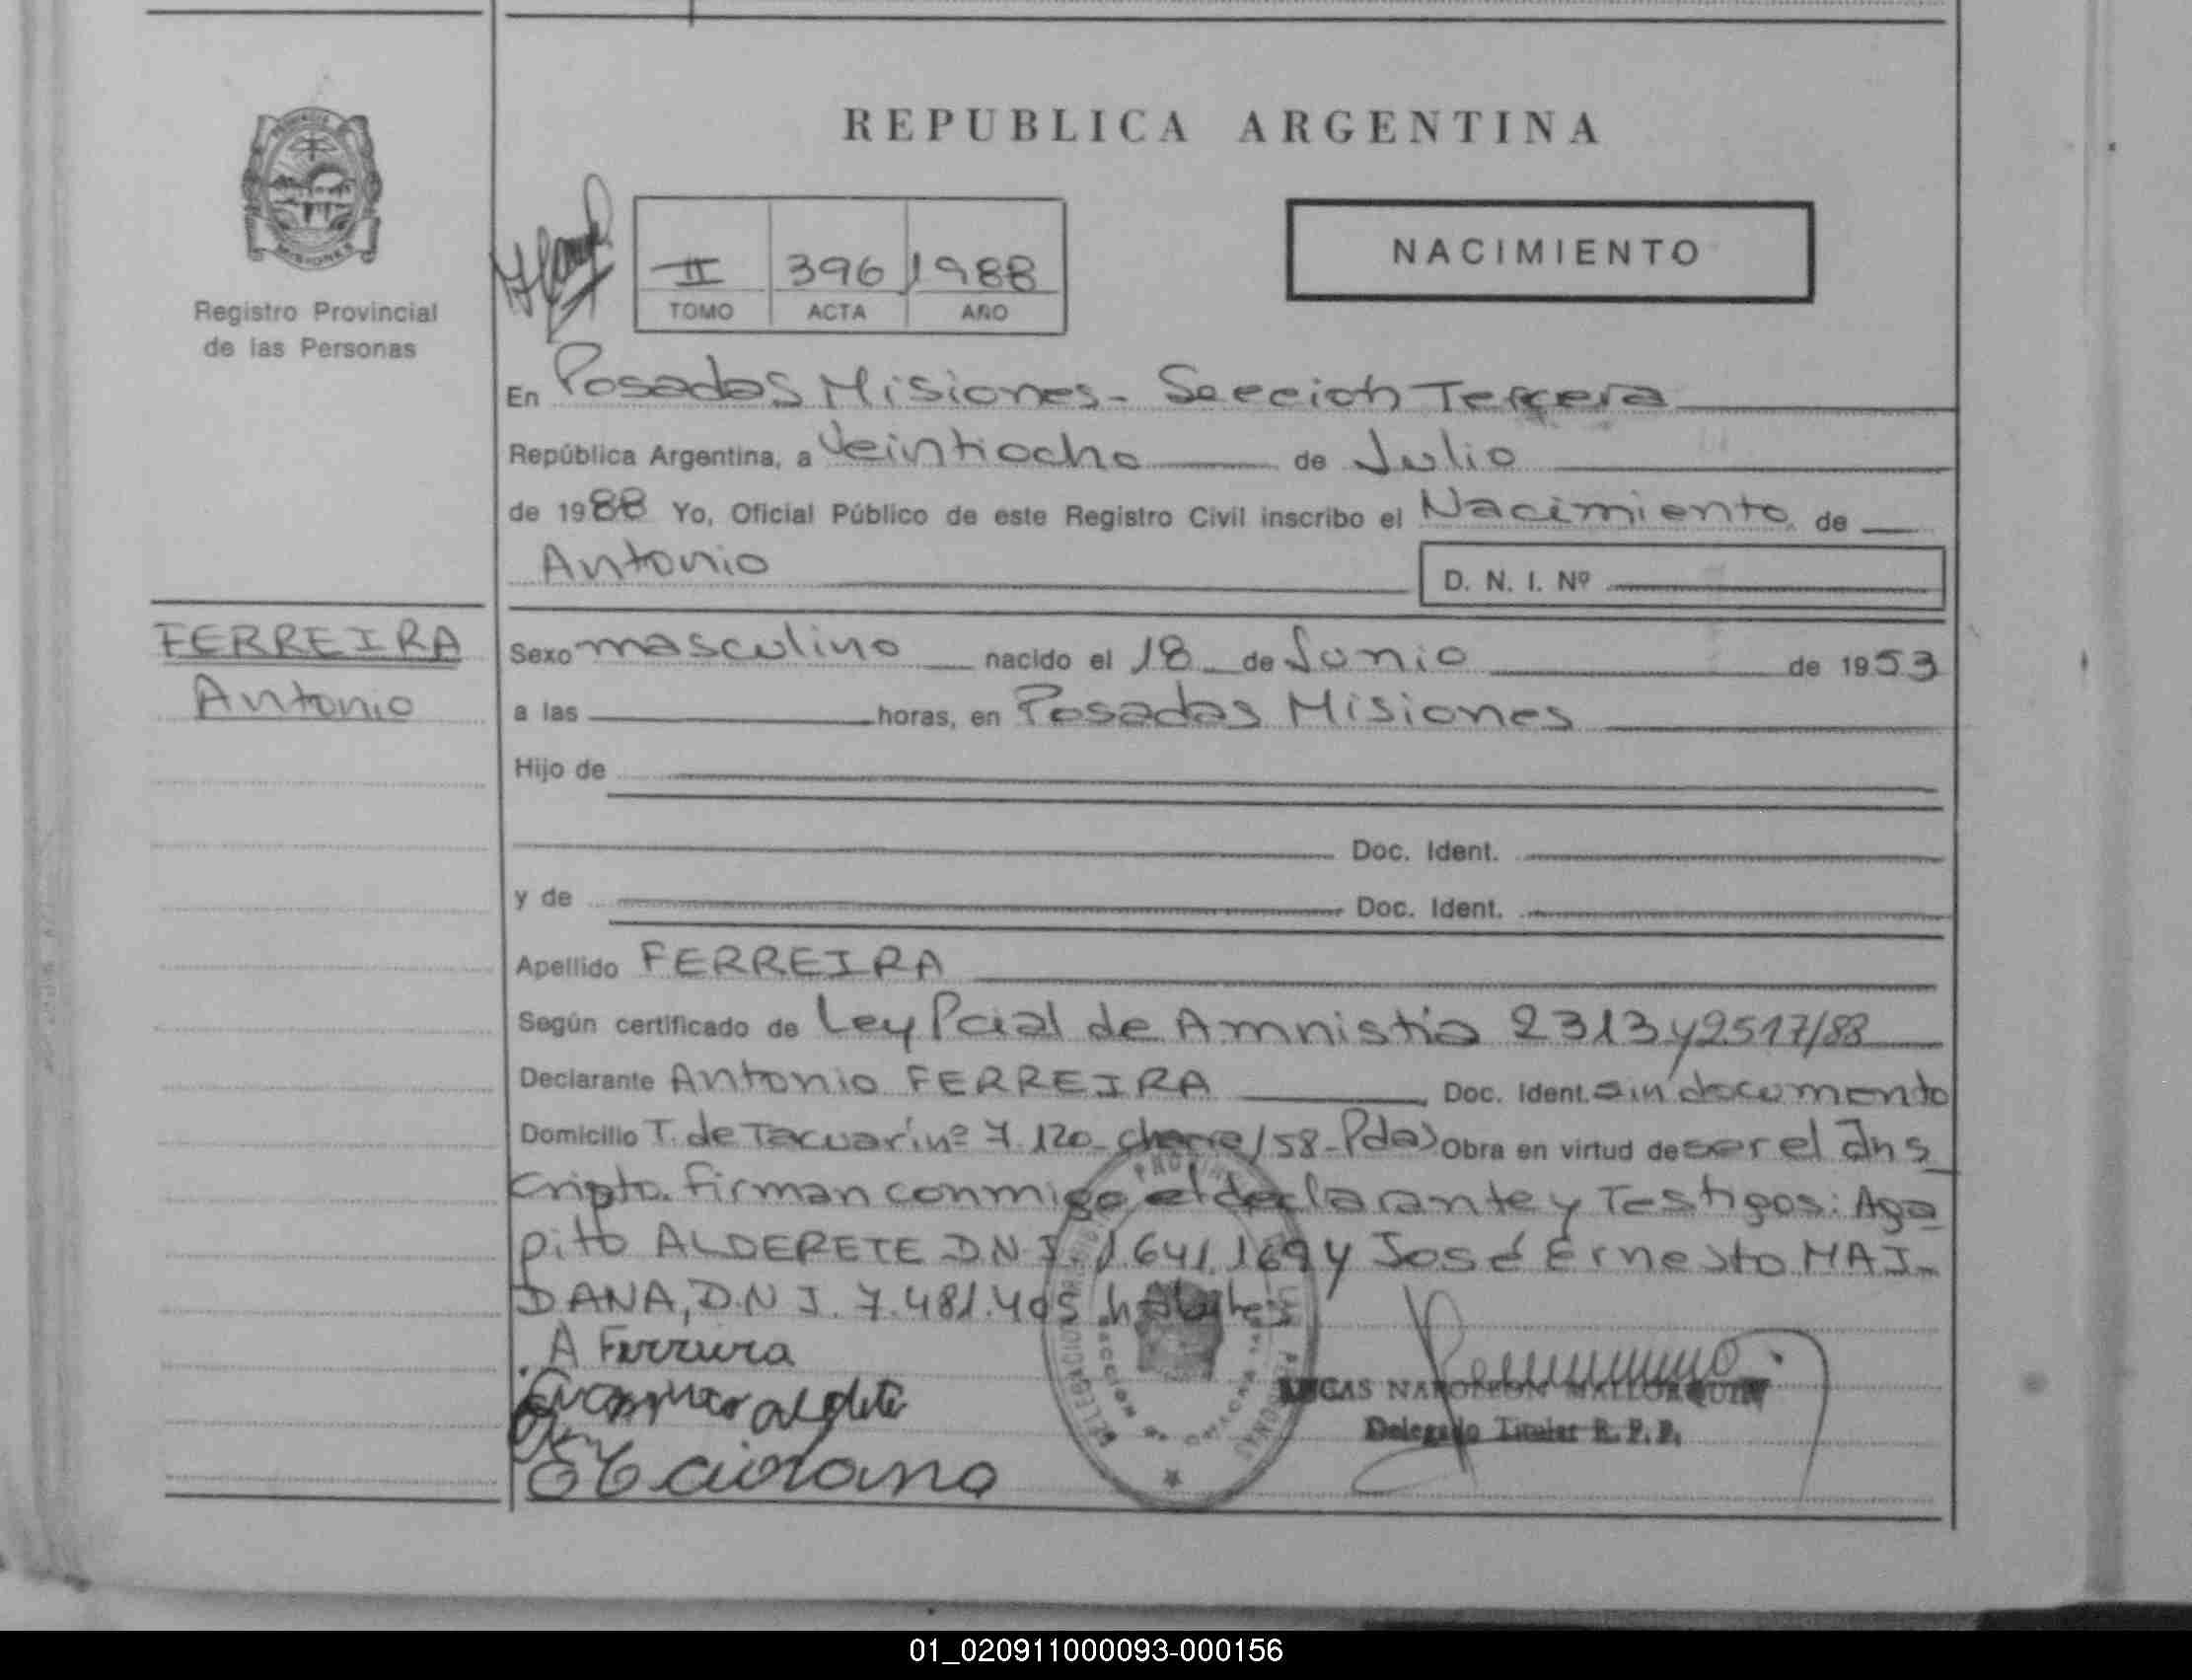 REPUBLICA ARGENTINA
PROVINCIA
MISIONES
Registro Provincial
de las Personas
II 396 1988
TOMO ACTA AÑO
NACIMIENTO
En Posadas Misiones - Sección Tercera
República Argentina, a Veintiocho de Julio
de 1988 Yo, Oficial Público de este Registro Civil inscribo el Nacimiento de
Antonio
D. N. I. Nº
FERREIRA
Antonio
Sexo masculino nacido el 18 de Junio de 1953
a las horas, en Posadas Misiones
Hijo de
Doc. Ident.
y de Doc. Ident.
Apellido FERREIRA
Según certificado de Ley Pcial de Amnistía 2313 y 2517/88
Declarante Antonio FERREIRA Doc. Ident. sin documento
Domicilio T. de Tacuarí nº 7.120 - 158 - Pdas Obra en virtud de ser el Ins
cripto. Firman conmigo el declarante y Testigos: Aga
pito ALDERETE D.N.I. 1.641.169 y José Ernesto MAI-
DANA, D.N.I. 7.481.405 hábiles
A Ferreira
LUCAS NAPOLEON MALLORQUIN
Delegado Titular R. P. P.
01_020911000093-000156